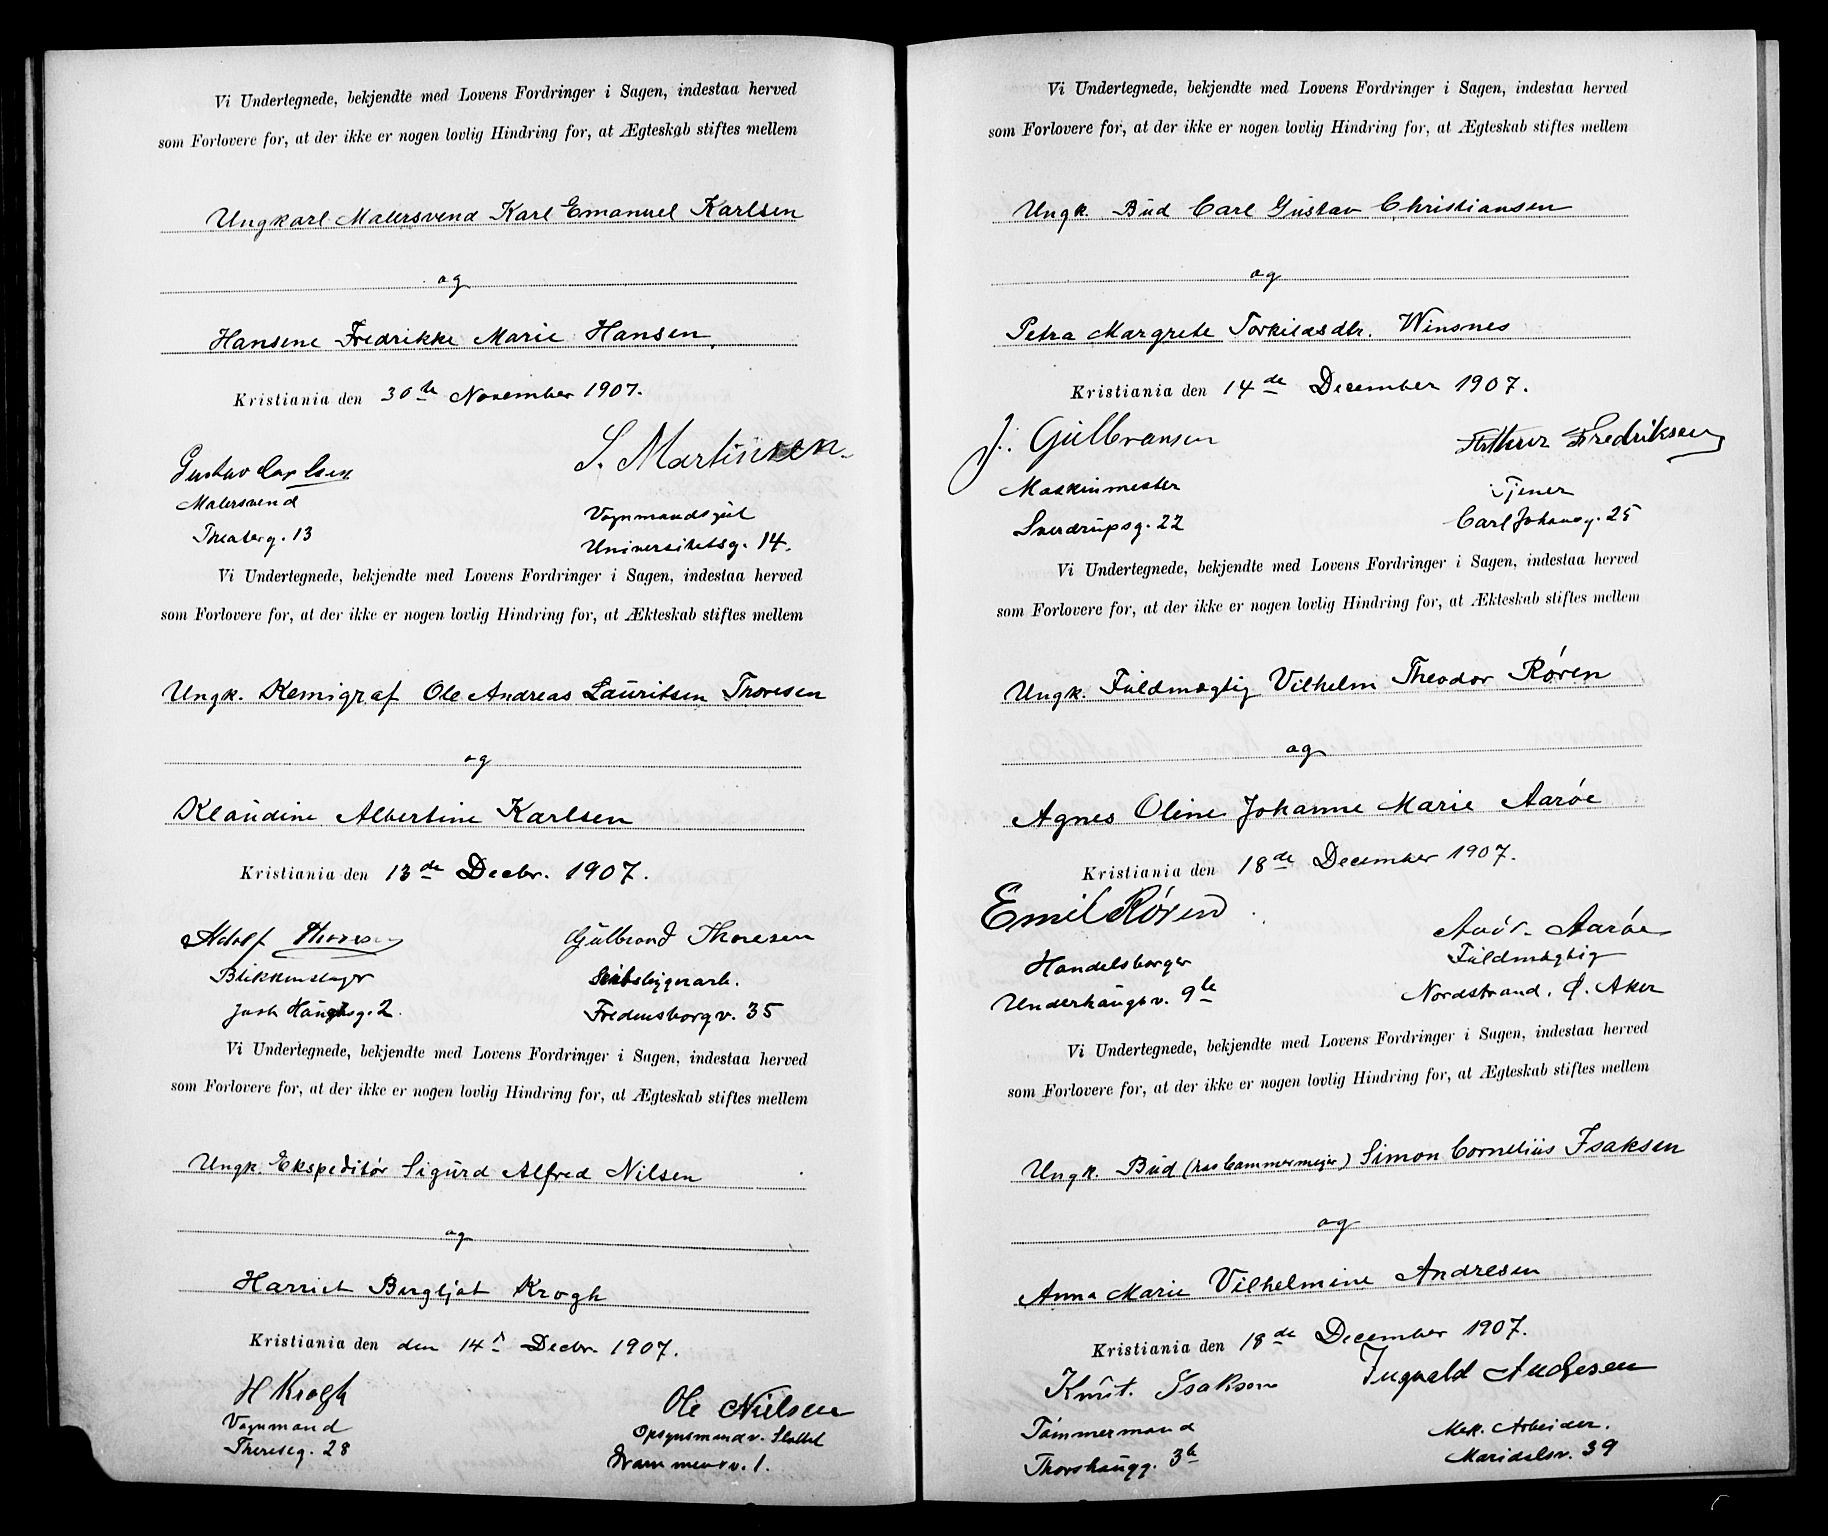 Vi Undertegnede, bekjendte med Lovens Fordringer i Sagen, indestaa herved
som Forlovere for, at der ikke er nogen lovlig Hindring for, at Ægteskab stiftes mellem
Ungkarl Malersvend Karl Emanuel Karlsen
og
Hansene Fredrikke Marie Hansen.
Kristiania den 30te November 1907.
Gustav Carlsen S. Martinsen
Malersvend Vognmandsgut
Theaterg. 13 Universitetsg. 14.
Vi Undertegnede, bekjendte med Lovens Fordringer i Sagen, indestaa herved
som Forlovere for, at der ikke er nogen lovlig Hindring for, at Ækteskab stiftes mellem
Ungk. Kemigraf Ole Andreas Lauritsen Thoresen
og
Klaudine Albertine Karlsen
Kristiania den 13de Decbr. 1907.
Adolf Thoresen Gulbrand Thoresen
Blikkenslager Skibsbyggerarb.
Just Haugsg. 2. Fredensborgv. 35
Vi Undertegnede, bekjendte med Lovens Fordringer i Sagen, indestaa herved
som Forlovere for, at der ikke er nogen lovlig Hindring for, at Ægteskab stiftes mellem
Ungk. Ekspeditör Sigurd Alfred Nilsen
og
Harriet Bergljot Krogh
Kristiania den den 14 Decbr. 1907.
H Krogh Ole Nielsen
Vognmand Opsynsmand v. Slottet
Thereseg. 28 Drammensv. 1.
Vi Undertegnede, bekjendte med Lovens Fordringer i Sagen, indestaa herved
som Forlovere for, at der ikke er nogen lovlig Hindring for, at Ægteskab stiftes mellem
Ungk. Bud Carl Gustav Christiansen
og
Petra Margrete Torkildsdtr. Winsnes
Kristiania den 14de December 1907.
J. Gulbransen Arthur Fredriksen
Maskinmester Tjener
Sverdrupsg. 22 Carl Johansg. 25
Vi Undertegnede, bekjendte med Lovens Fordringer i Sagen, indestaa herved
som Forlovere for, at der ikke er nogen lovlig Hindring for, at Ækteskab stiftes mellem
Ungk. Fuldmægtig Vilhelm Theodor Røren
og
Agnes Oline Johanne Marie Aarøe
Kristiania den 18de December 1907.
Emil Røren Aarøe
Handelsborger Fuldmægtig
Underhaugsv. 9 Nordstrand. Ø. Aker
Vi Undertegnede, bekjendte med Lovens Fordringer i Sagen, indestaa herved
som Forlovere for, at der ikke er nogen lovlig Hindring for, at Ægteskab stiftes mellem
Ungk. Bud (hos Cammermejer) Simon Cornelius Isaksen
og
Anna Marie Vilhelmine Andresen
Kristiania den 18de December 1907.
Knut. Isaksen Ingvald Andresen
Tömmermand Mek. Arbeider.
Thorshaugg. 3b Maridalsv. 39